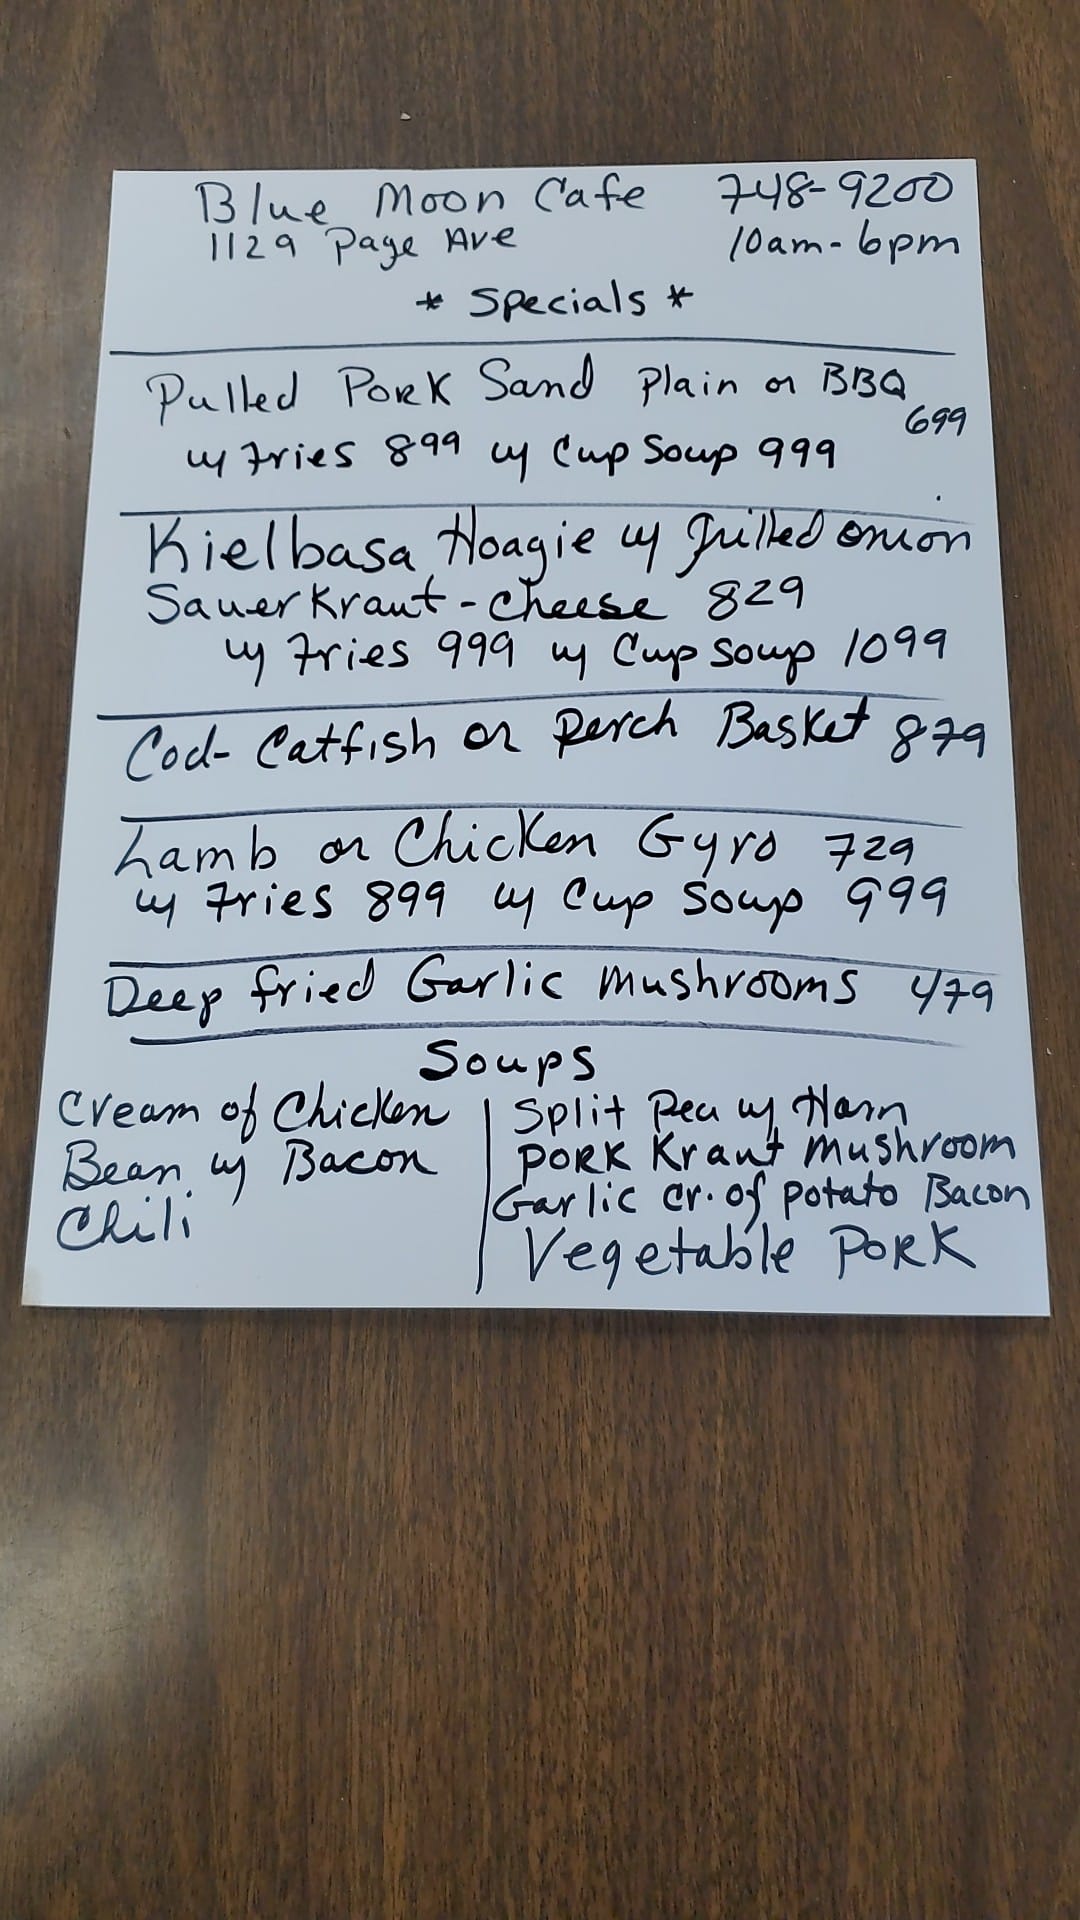 Blue Moon Cafe 748-9200
1129 Page Ave 10am-6pm
* Specials *
Pulled Pork Sand Plain or BBQ
699
w/ Fries 899 w/ Cup Soup 999
Kielbasa Hoagie w/ Grilled onion
SauerKraut - cheese 829
w/ Fries 999 w/ Cup Soup 1099
Cod - Catfish or Perch Basket 879
Lamb or Chicken Gyro 729
w/ Fries 899 w/ Cup Soup 999
Deep fried Garlic mushrooms 479
Soups
Cream of Chicken
Bean w/ Bacon
Chili
Split Pea w/ Ham
Pork Kraut Mushroom
Garlic cr. of potato Bacon
Vegetable Pork